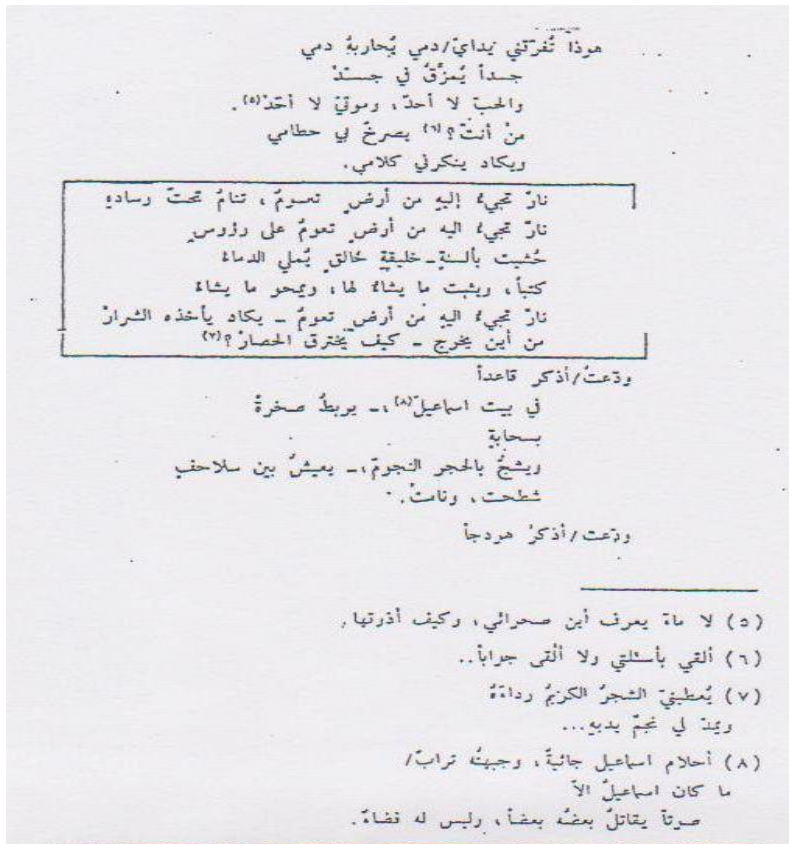 هوذا تُفرّقني يدايَ/دمي يُحاربهُ دمي
جسداً يُمزَّقُ في جسدْ
والحبّ لا أحدٌ، وموتيَ لا أحدْ(٥).
منْ أنتَ؟(٦) يصرخُ بي حطامي
ويكاد ينكرني كلامي.
نارٌ تجيءُ إليهِ من أرضٍ تعومُ، تنامُ تحتَ وسادهِ
نارٌ تجيءُ اليه من أرضٍ تعومُ على رؤوسٍ
حُشيت بألسنةٍ ـ خليقةِ خالقٍ يُملي الدماءَ
كتباً، ويثبت ما يشاءُ لها، ويمحو ما يشاءُ
نارٌ تجيءُ اليهِ من أرضٍ تعومُ ـ يكاد يأخذه الشرارْ
من أين يخرج ـ كيف يَخترق الحصارْ؟(٧)
ودّعتُ/أذكر قاعداً
في بيت اسماعيلَ(٨)،ـ يربطُ صخرةً
بسحابةٍ
ويشجُّ بالحجر النجومَ،ـ يعيشُ بين سلاحفٍ
شطحت، ونامتْ.
ودّعت/أذكرُ هودجاً
(٥) لا ماءَ يعرف أين صحرائي، وكيف أذرتها.
(٦) ألقي بأسئلتي ولا ألْقى جواباً..
(٧) يُعطينيَ الشجرُ الكريمُ رداءَهُ
ويمدّ لي نجمٌ يديهِ...
(٨) أحلام اسماعيل جاثيةٌ، وجبهتُه ترابٌ/
ما كان اسماعيلُ الاّ
صوتاً يقاتلُ بعضُه بعضاً، وليس له فضاءٌ.